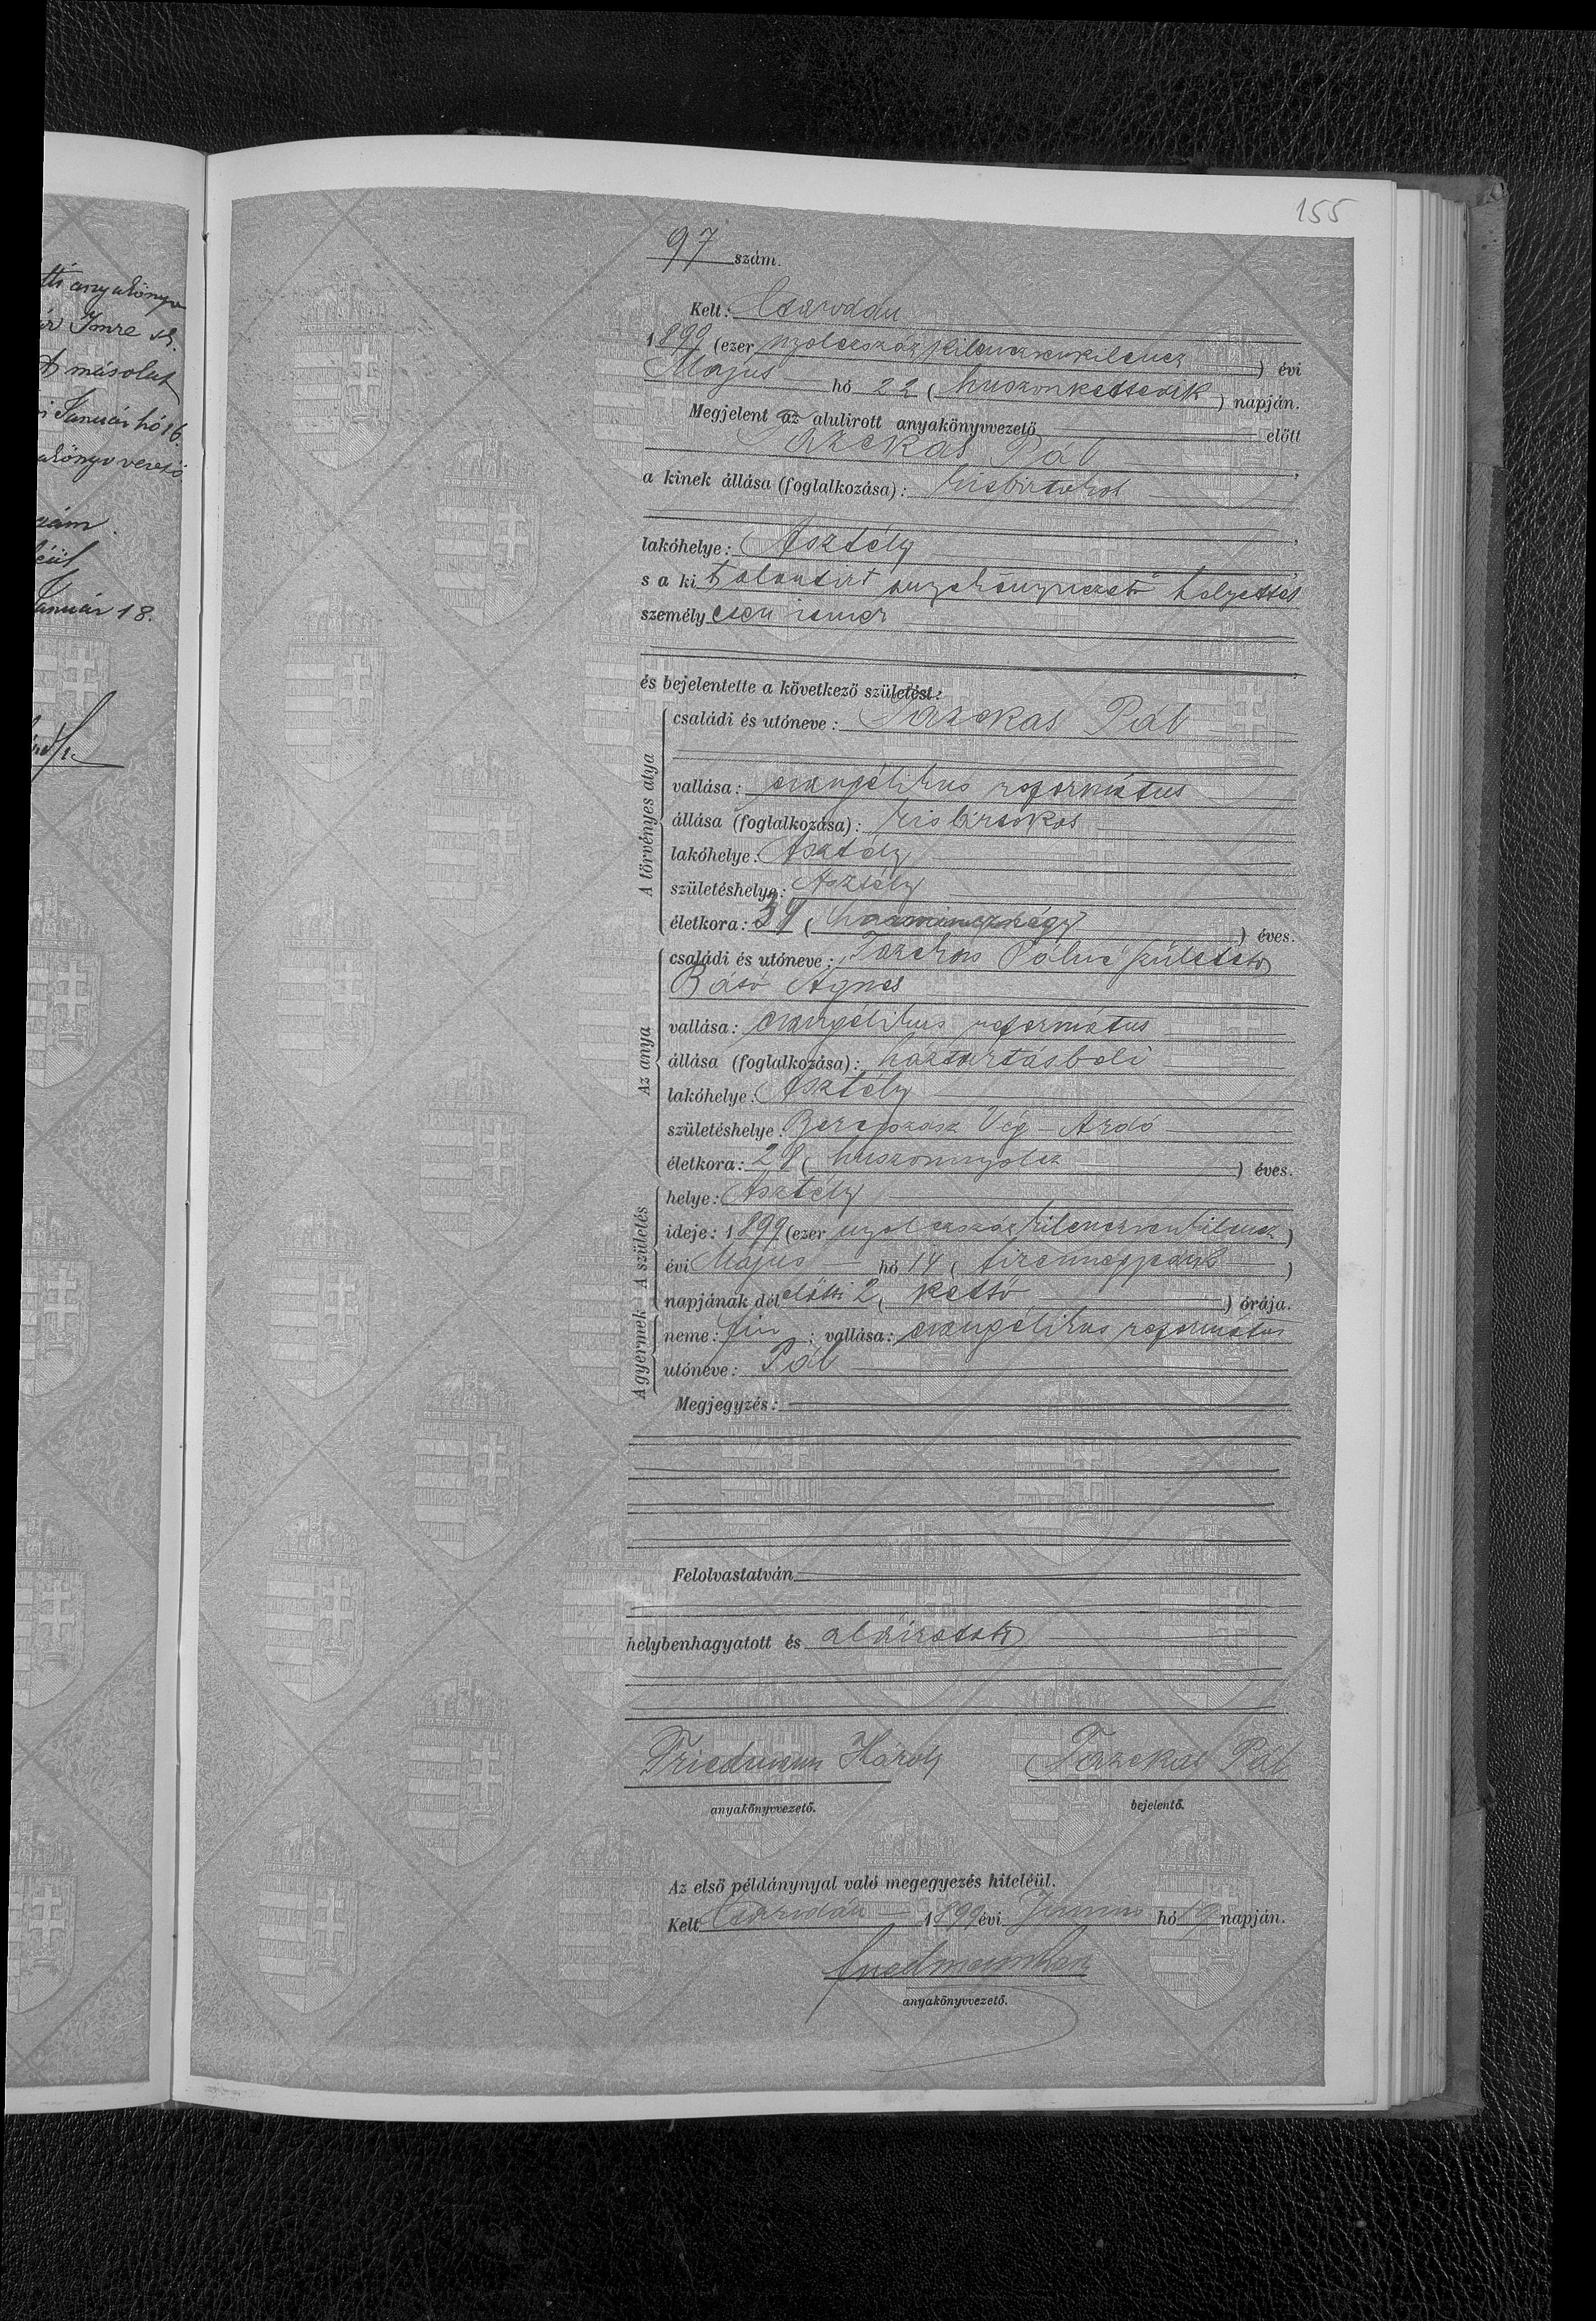 155
97 szám.
Kelt: Csarodán
1899 (ezer nyolcszázkilenczvenkilencz) évi
Május hó 22 (huszonkettedik) napján.
Megjelent az alulirott anyakönyvvezető előtt
Fazekas Pál,
a kinek állása (foglalkozása): kisbirtokos
lakóhelye: Asztély,
s a kit alantirt anyakönyvvezető helyettes
személyesen ismer
és bejelentette a következő születést:
A törvényes atya
családi és utóneve: Fazekas Pál
vallása: evangélikus református
állása (foglalkozása): kisbirtokos
lakóhelye: Asztély
születéshelye: Asztély
életkora: 34 (harmincznégy) éves.
Az anya
családi és utóneve: Fazekas Pálné született
Básó Ágnes
vallása: evangélikus református
állása (foglalkozása): háztartásbeli
lakóhelye: Asztély
születéshelye: Beregszász Vég-Ardó
életkora: 28 (huszonnyolcz) éves.
A születés
helye: Asztély
ideje: 1899 (ezer nyolczszázkilenczvenkilencz)
évi Május hó 14 (tizennegyedik)
napjának délelőtti 2 (kettő) órája.
A gyermek
neme: fiu; vallása: evangélikus református
utóneve: Pál
Megjegyzés:
Felolvastatván
helybenhagyatott és aláiratott
Friedmann Károly Fazekas Pál
anyakönyvvezető. bejelentő.
Az első példánynyal való megegyezés hiteléül.
Kelt Csarodán 1899 évi Junius hó 19 napján.
anyakönyvvezető.
anyakönyv
Imre sk.
másolat
i Január hó 16.
szám
Január 18.